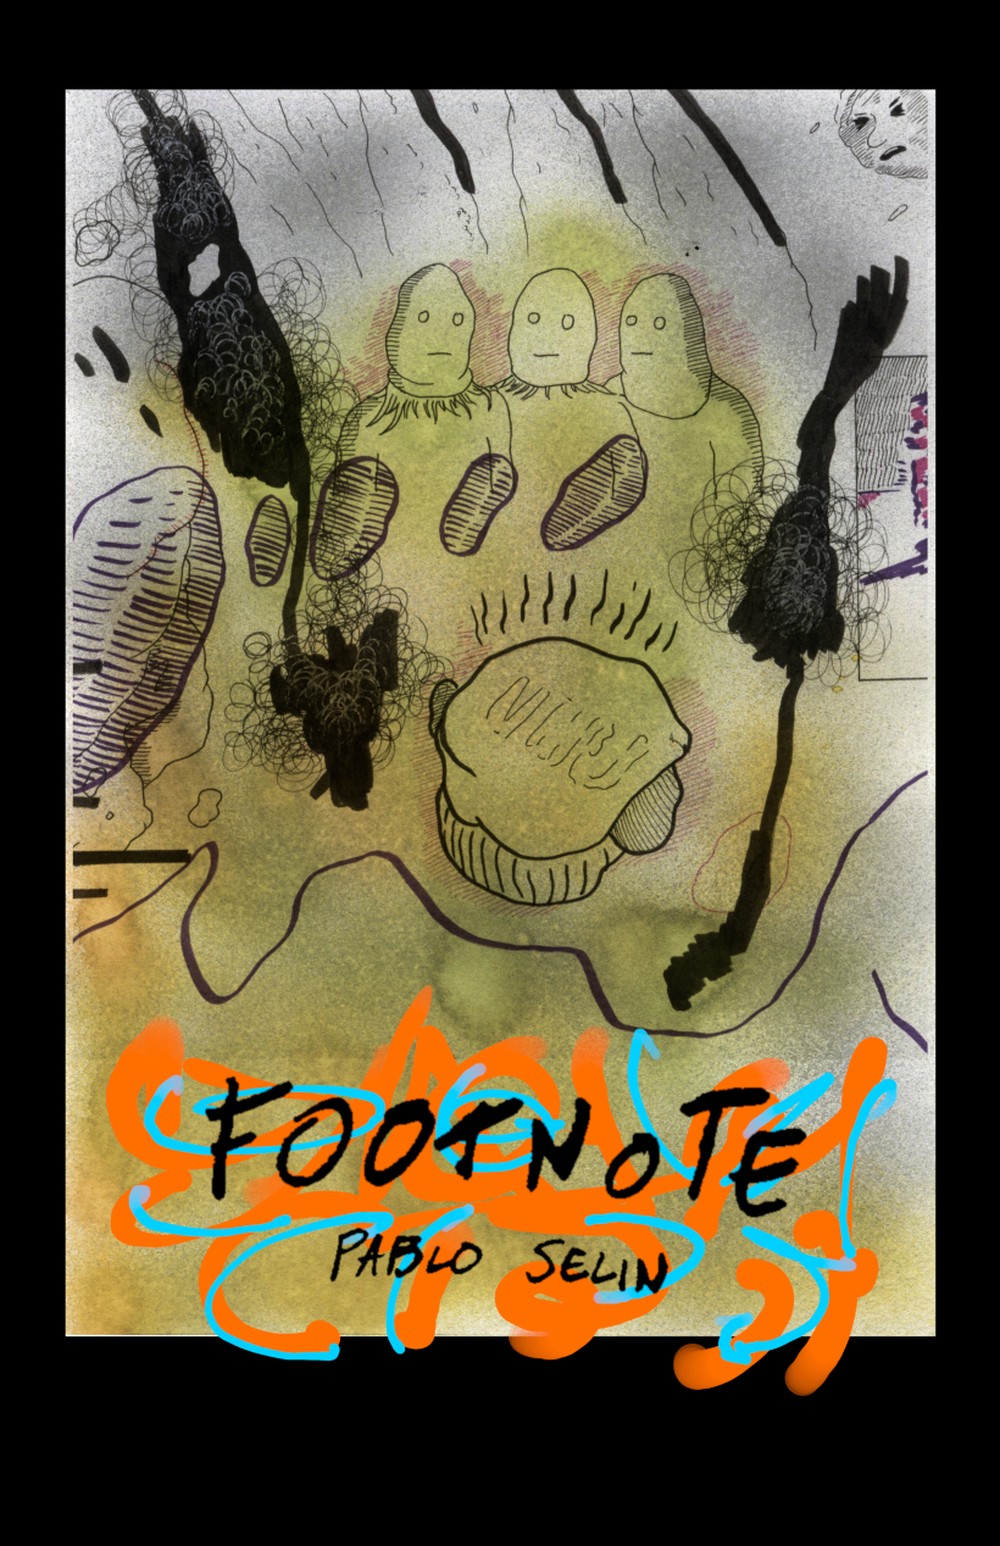 FOOTNOTE
PABLO SELIN